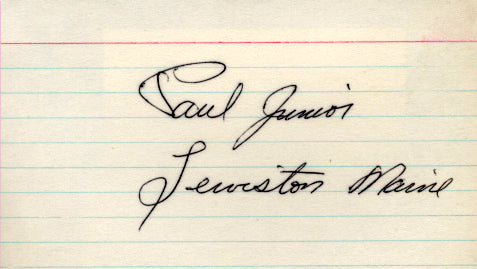 Paul Junior
Lewiston Maine